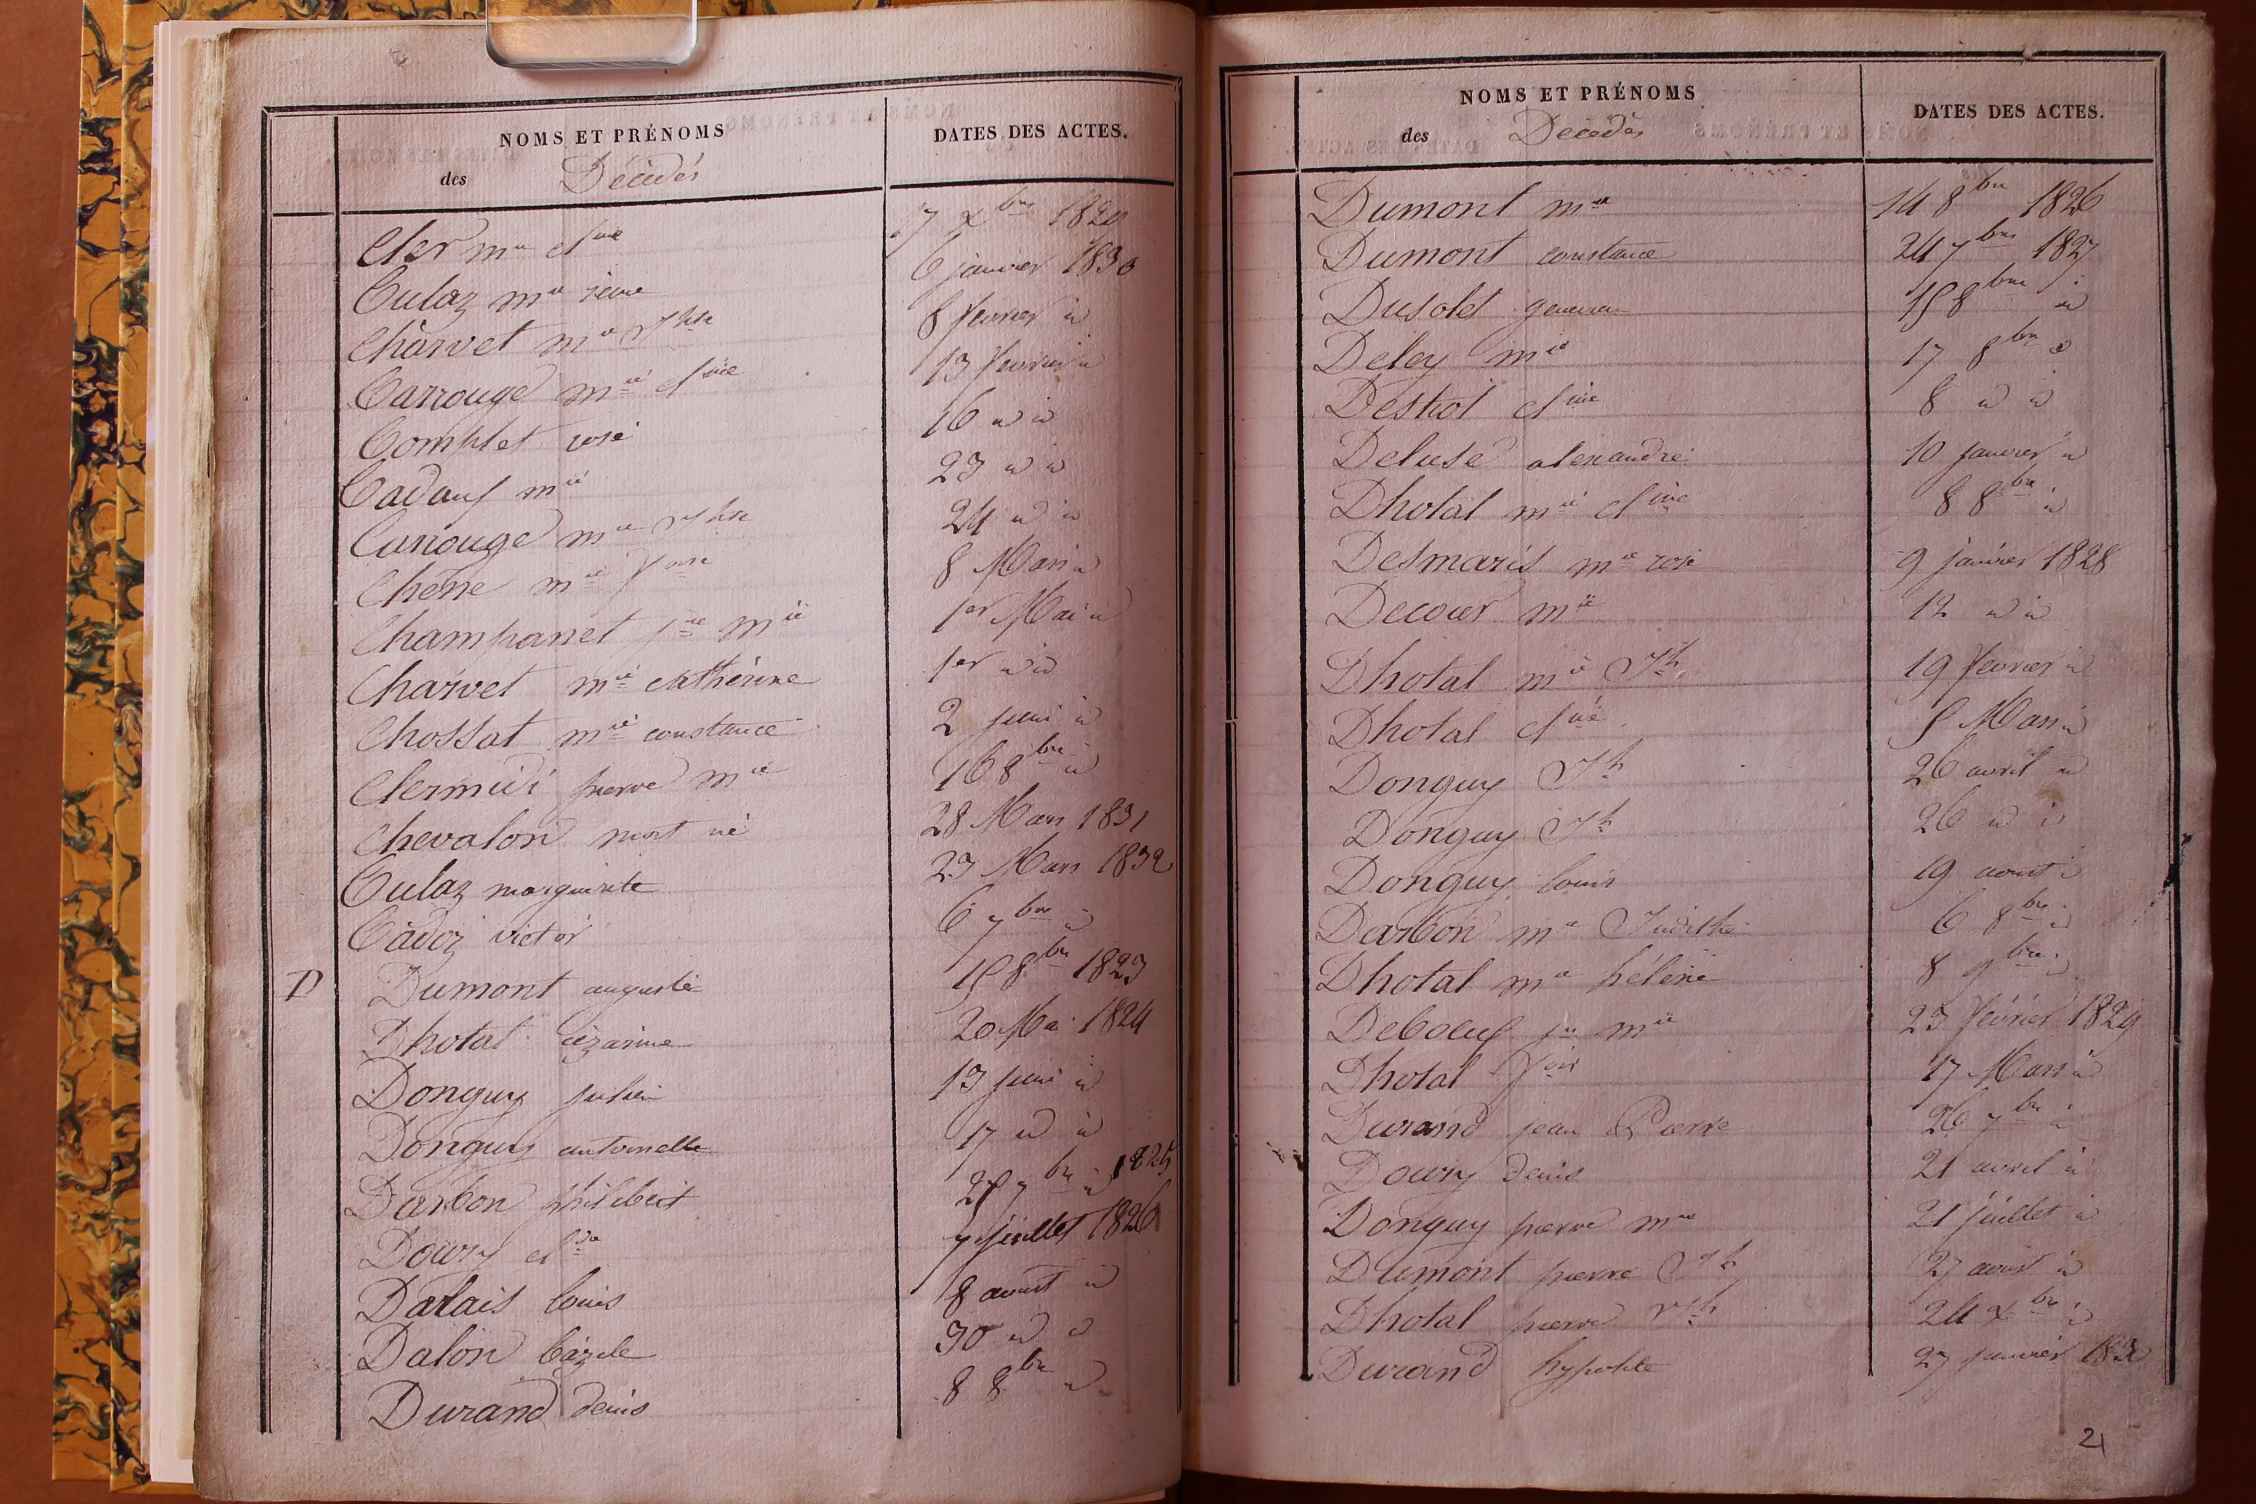 NOMS ET PRÉNOMS DATES DES ACTES.
des Décédés
Cler mie cline 7 xbre 1829
Culaz mie reine 6 janvier 1830
Charvet mie Jhte 8 fevrier id
Carrouge mie cline 13 fevrier id
Complet rose 16 id id
Cadouf mie 23 id id
Carrouge mie Jhte 24 id id
Chene mie foise 8 Mars id
Champanet jne mie 1er Mai id
Charvet mie Catherine 1er id id
Chossat mie constance 2 juin id
Clermidi pierre mie 16 8bre id
Chevalon mort né 28 Mars 1831
Culaz marguerite 23 Mars 1832
Cadoz victor 6 7bre id
D Dumont auguste 15 8bre 1823
Dhotal cézarine 20 Mai 1824
Donguy julien 13 juin id
Donguy antoinette 17 id id
Darbon philibert 7bre 1825
Doury clde 7 juillet 1826
Dalais louis 8 aoust id
Dalon bazile 30 id id
Durand denis 8 8bre id
NOMS ET PRÉNOMS DATES DES ACTES.
des Décédés
Dumont mie 14 8bre 1826
Dumont constance 24 7bre 1827
Dusolet 15 8bre id
Deley mie 17 8bre id
Destiot cline 8 id id
Deluse alexandre 10 janvier id
Dhotal mie cline 8 8bre id
Desmaris mie rose 9 janvier 1828
Decour mie 12 id id
Dhotal mie Jh 19 fevrier id
Dhotal clne 5 Mars id
Donguy Jh 26 avril id
Donguy Jh 26 id id
Donguy louis 19 aoust id
Darbon mie Judithe 6 8bre id
Dhotal mie héléne 8 9bre id
Deboeuf jn mie 23 février 1829
Dhotal fois 17 Mars id
Durand jean Pierre 26 7bre id
Doury denis 21 avril id
Donguy pierre mie 21 juillet id
Dumont pierre Jh 27 aout id
Dhotal pierre Jh 24 xbre id
Durand hypolite 27 janvier
21